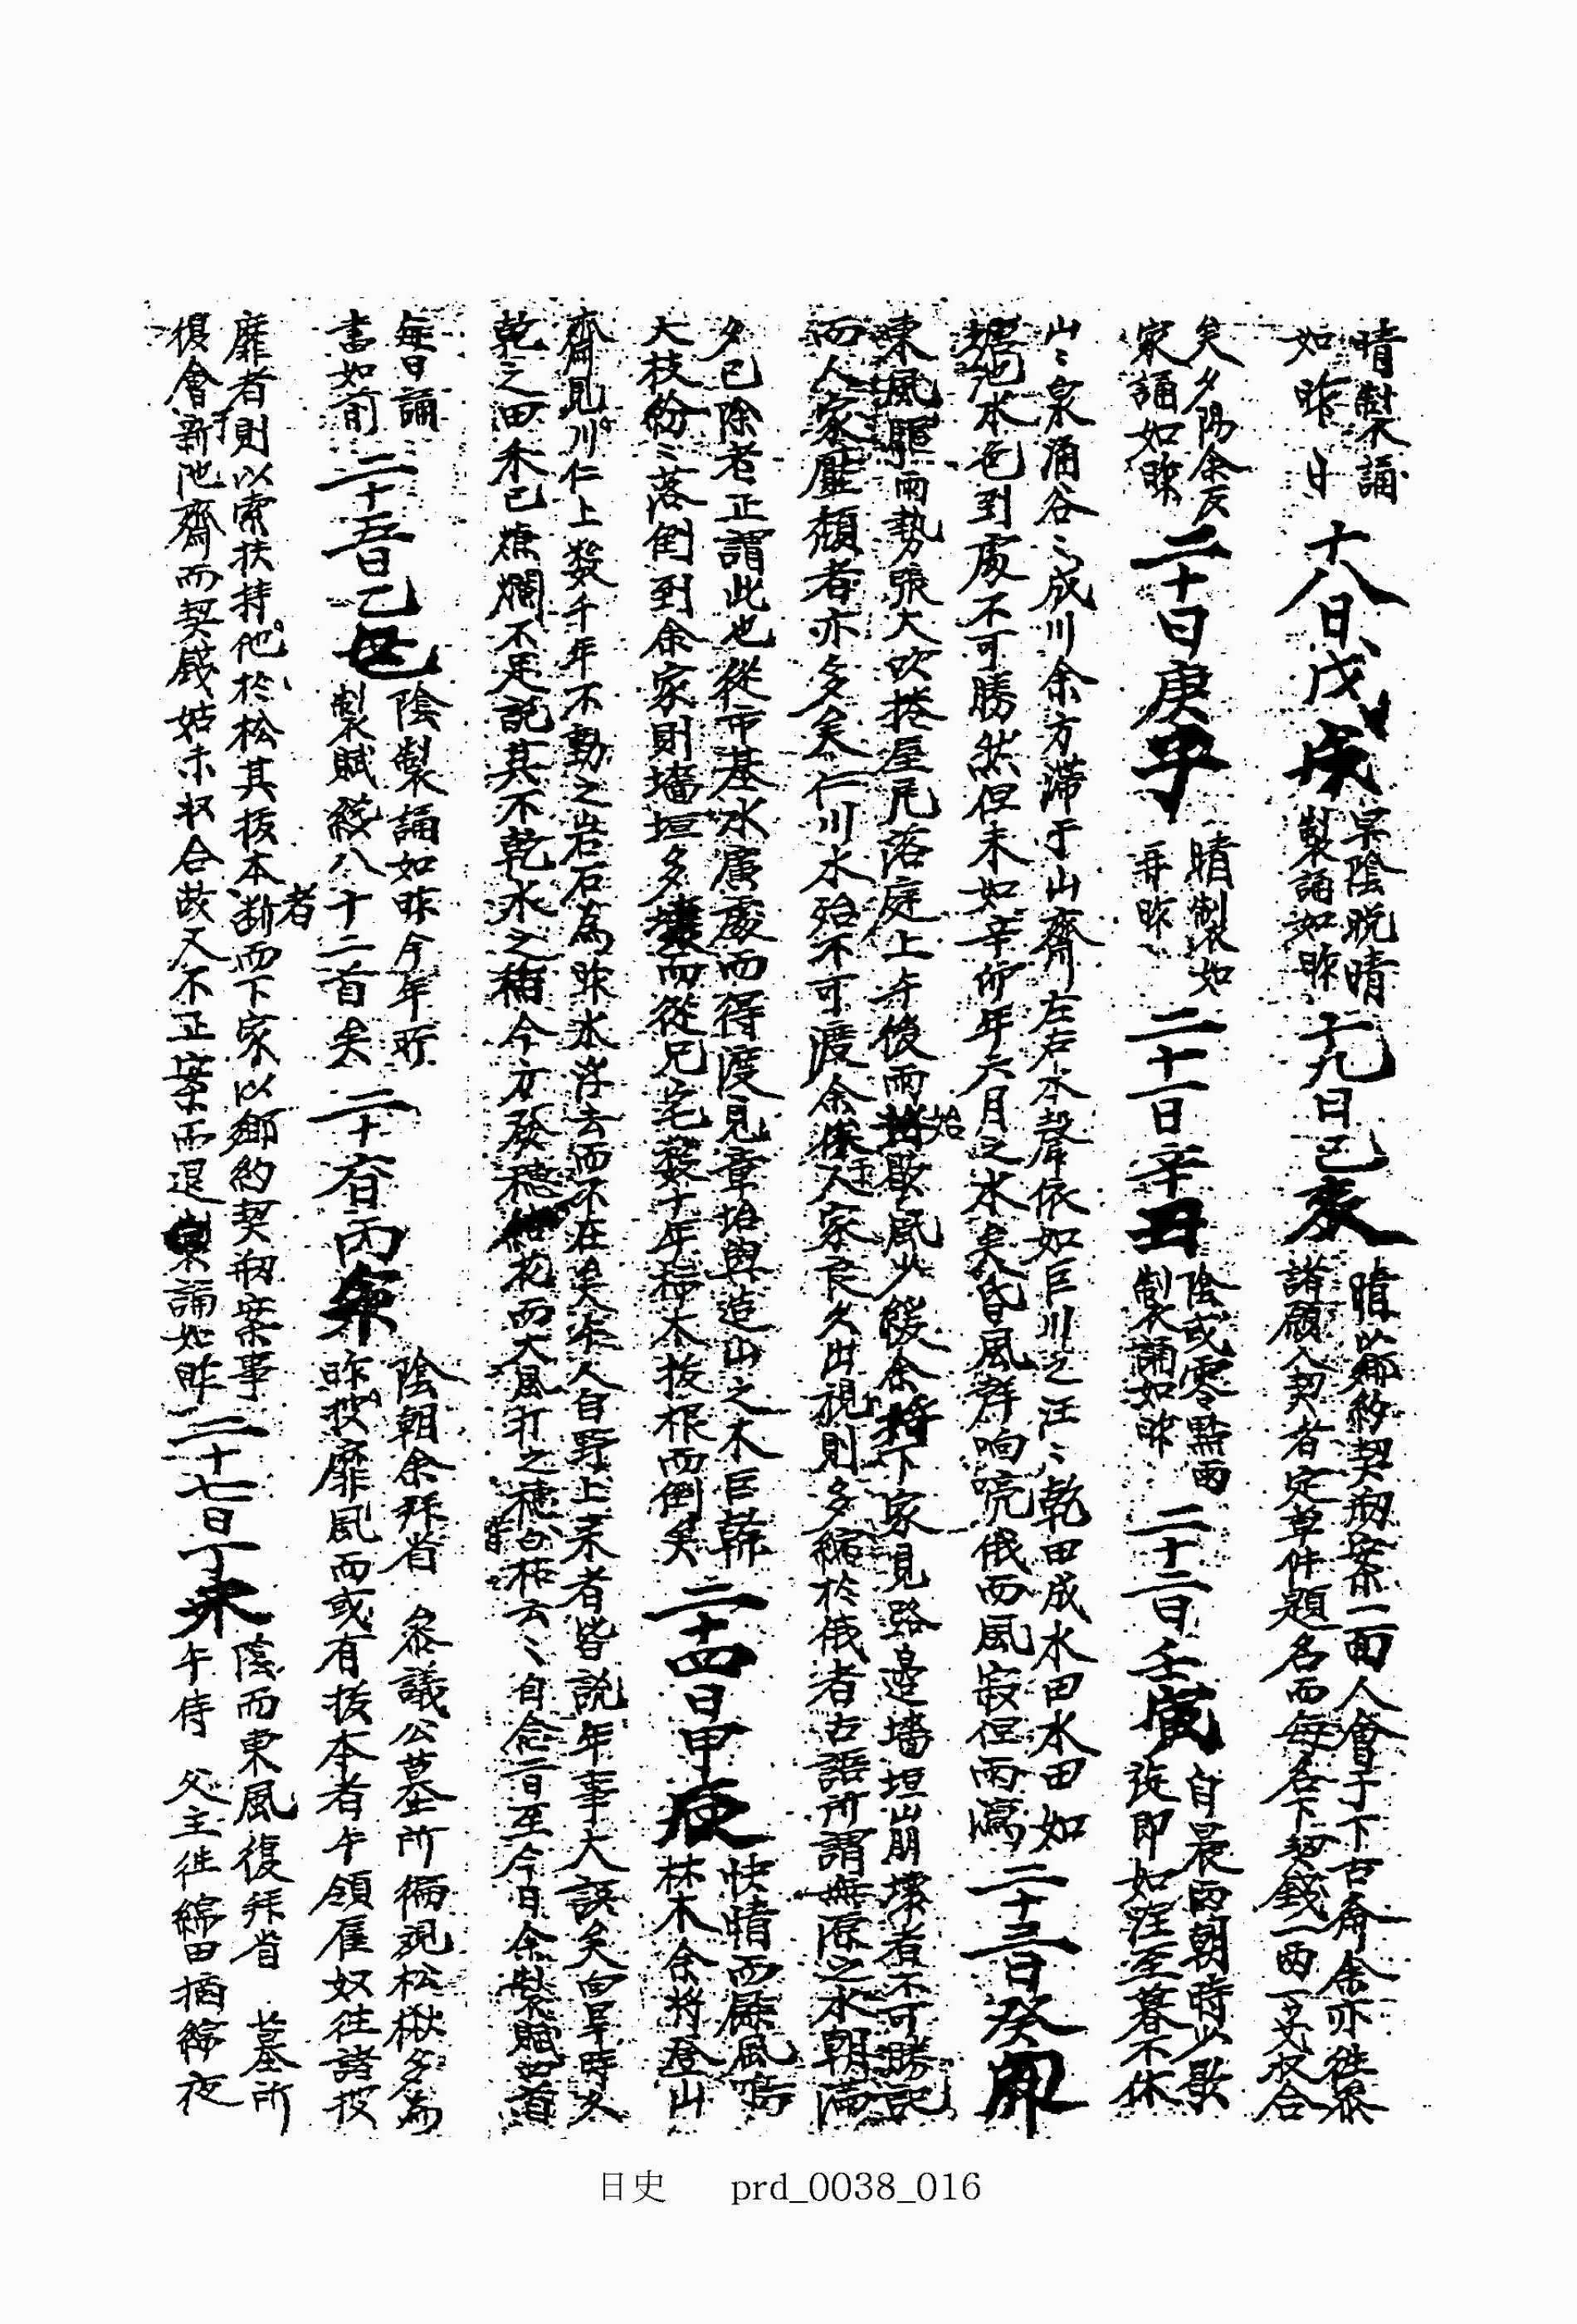 晴製誦
如昨日
十八日戊戌
早陰晩晴
製誦如昨
十九日己亥
晴以鄕約契初案一面人會于下古齋余亦徃參
諸願入契者定草件題名而每名下契錢一兩式收合
矣夕陽余反
家誦如昨
二十日庚子
晴製如
再昨
二十一日辛丑
陰或零點雨
製誦如昨
二十二日壬寅
自晨雨朝時少歇
旋即如注至暮不休
山〻泉涌谷〻成川余方滯于山齋左右水聲依如巨川之汪〻乾田成水田水田如
池水色到處不可勝然但未如辛卯年六月之水矣昏風聲响喨俄而風寂但雨瀉
二十三日癸卯
東風驅雨勢張大吹捲屋瓦落庭上午後雨始歇風少緩余下家見路邊墻垣崩壞者不可勝記
而人家壓頹者亦多矣仁川水殆不可渡余家良久出視則多縮於俄者古語所謂無源之水朝滿
夕已除者正謂此也從市基水廣處而得渡見章坮與造山之木巨幹
大枝紛〻落倒到余家則墻垣多壞而從兄宅數十年柿木拔根而倒矣
二十四日甲辰
快晴而飇風鳴
林木余將登山
齋見川仁上數千年不動之岩石爲昨水浮去而不在矣宋人自野上來者皆說年事大誤矣向旱時久
乾之田禾已燋爛不足說其不乾水之稻今方發穗花而大風打之穗白枯云〻自念日至今日余製賦四首
每日誦
書如前
二十五日乙巳
陰製誦如昨今年所
製賦總八十二首矣
二十六日丙午
陰朝余拜省 參議公墓所徧覌松楸多爲
昨披靡風而或有拔本者午領雇奴往諸披
靡者則以索扶持他於松其拔本者斷而下家以鄕約契初案事
復會新池齋而契錢姑未收合故又不正案而退來誦如昨
二十七日丁未
陰而東風復拜省 墓所
午侍 父主徃綿田摘綿夜
日史 prd_0038_016